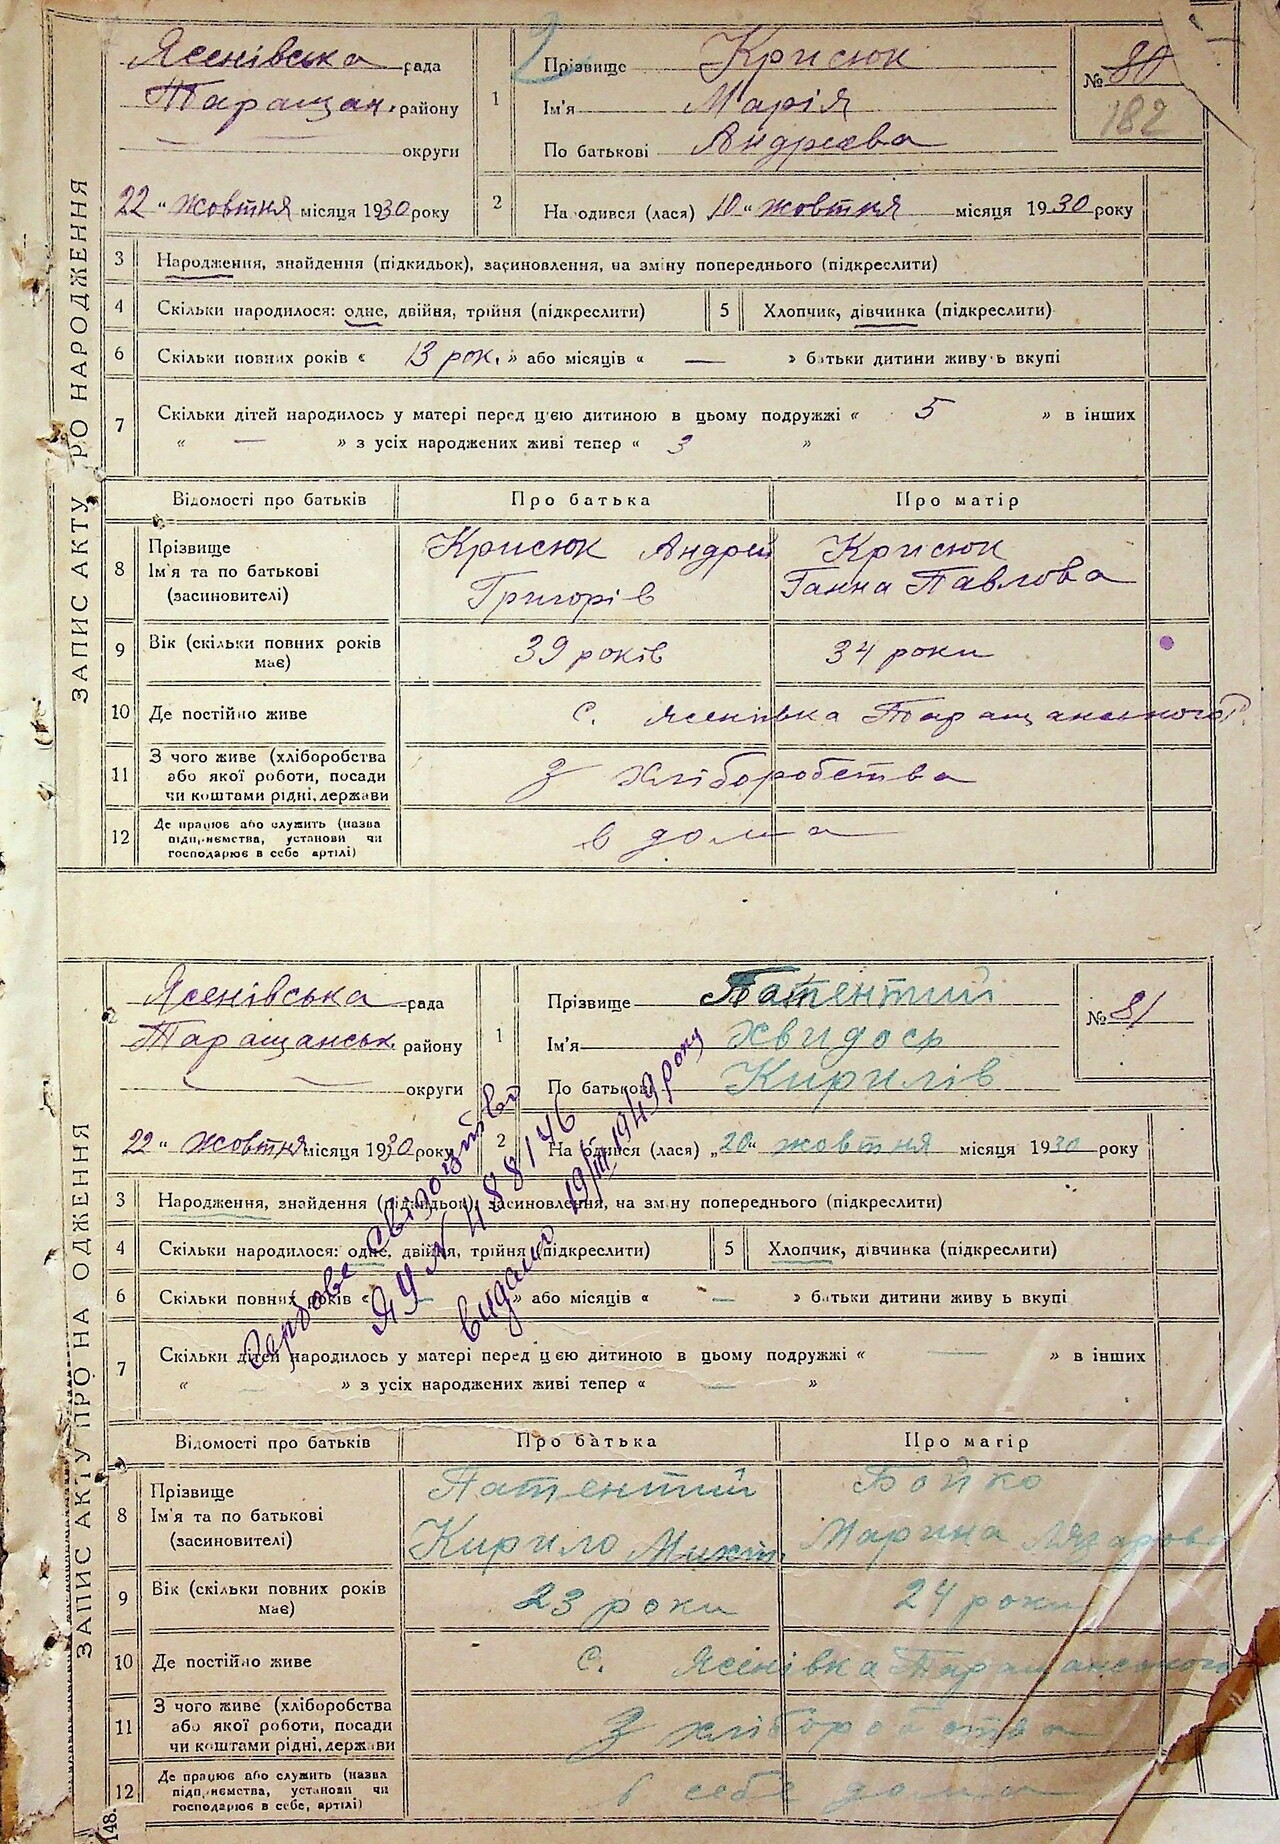 ЗАПИС АКТУ ПРО НАРОДЖЕННЯ
Ясенівська рада
Таращан. району
округи
22 " жовтня місяця 1930 року
2
1 Прізвище Крисюк
Ім'я Марія
По батькові Андрєєва
№ 80
182
2 На одився (лася) 10 " жовтня місяця 1930 року
3 Народження, знайдення (підкидьок), засиновлення, на зміну попереднього (підкреслити)
4 Скільки народилося: одне, двійня, трійня (підкреслити) 5 Хлопчик, дівчинка (підкреслити)
6 Скільки повних років « 13 рок. » або місяців « — » батьки дитини живу ь вкупі
7 Скільки дітей народилось у матері перед цією дитиною в цьому подружжі « 5 » в інших
« — » з усіх народжених живі тепер « 3 »
Відомості про батьків Про батька Про матір
8 Прізвище Ім'я та по батькові (засиновителі)
Крисюк Андрей Григорів
Крисюк Ганна Павлова
9 Вік (скільки повних років має) 39 років 34 роки
10 Де постійно живе с. Ясенівка Таращанського р.
11 З чого живе (хліборобства або якої роботи, посади чи коштами рідні, держави
З хліборобства
12 Де працює або служить (назва підприємства, установи чи господарює в себе артілі)
в дома
ЗАПИС АКТУ ПРО НА ОДЖЕННЯ
Ясенівська рада
Таращанськ. району
округи
22 " жовтня місяця 1930 року
1 Прізвище Патентий
Ім'я Хвидось
По батькові Кирилів
№ 81
2 На одився (лася) „20" жовтня місяця 1930 року
3 Народження, знайдення (підкидьок), засиновлення, на зміну попереднього (підкреслити)
4 Скільки народилося: одне, двійня, трійня (підкреслити) 5 Хлопчик, дівчинка (підкреслити)
6 Скільки повних років « — » або місяців « — » батьки дитини живу ь вкупі
7 Скільки дітей народилось у матері перед цією дитиною в цьому подружжі « — » в інших
« — » з усіх народжених живі тепер « — »
Гербове свідоцтво
ЯУ N 488146
видано 19/III 1949 року
Відомості про батьків Про батька Про матір
8 Прізвище Ім'я та по батькові (засиновителі)
Патентий Кирило Микит.
Бойко Марина Лазарова
9 Вік (скільки повних років має) 23 роки 24 роки
10 Де постійно живе с. Ясенівка Таращанського
11 З чого живе (хліборобства або якої роботи, посади чи коштами рідні, держави
З хліборобства
12 Де працює або служить (назва підприємства, установи чи господарює в себе, артілі)
в себе дома
148.